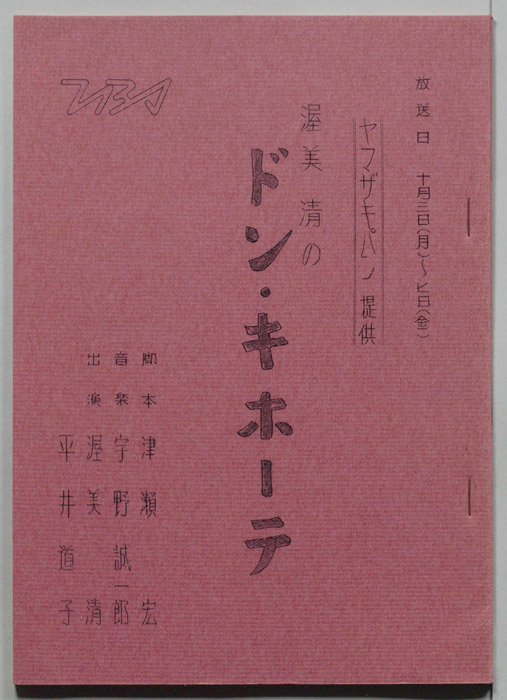 放送日 十月三日(月)〜七日(金)
ヤマザキパン 提供
渥美清の
ドン・キホーテ
TBS
脚本 津瀬 宏
音楽 宇野誠一郎
出演 渥美 清
平井道子